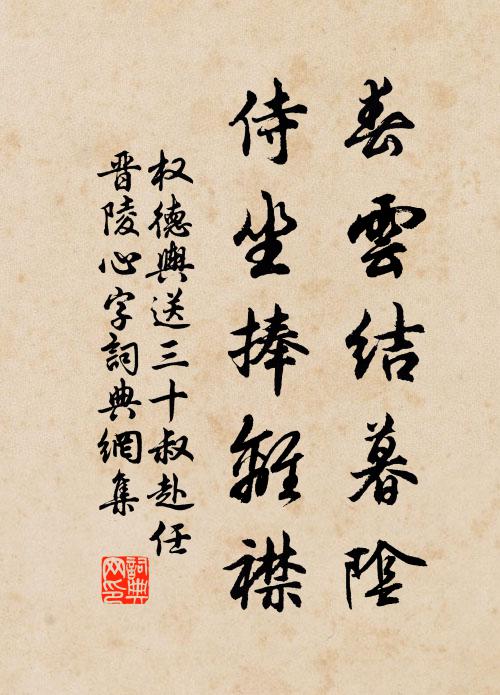 春雲結暮陰
侍坐捧離襟
权德輿送三十叔赴任
晋陵心字詞典網集
詞典网印